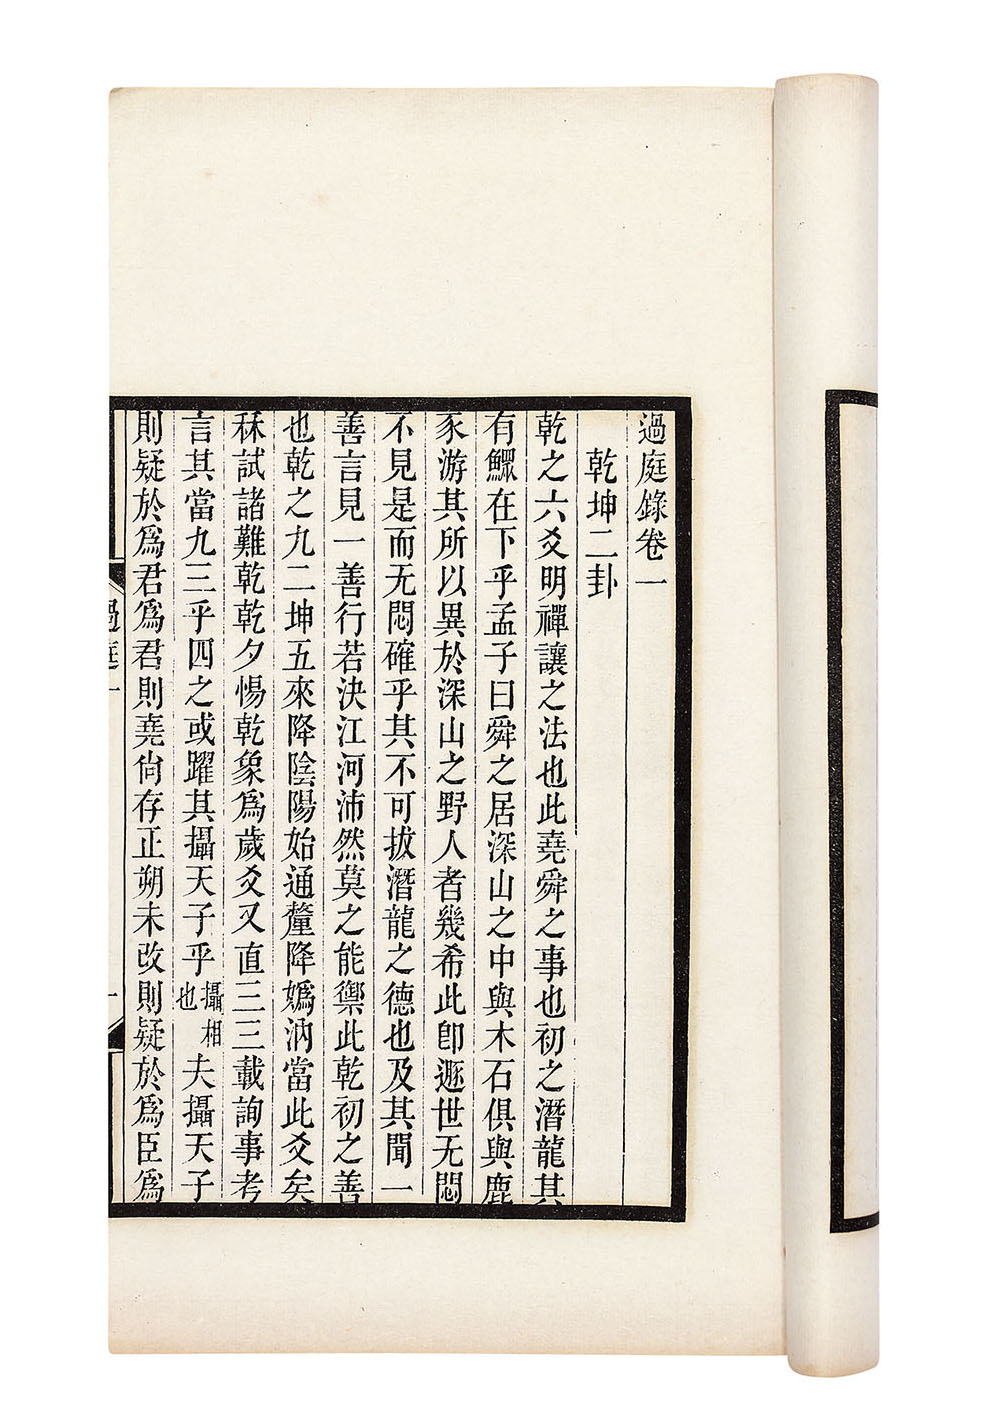 過庭錄卷一
乾坤二卦
乾之六爻明禪讓之法也此堯舜之事也初之潛龍其
有鰥在下乎孟子曰舜之居深山之中與木石俱與鹿
豕游其所以異於深山之野人者幾希此卽遯世无悶
不見是而无悶確乎其不可拔潛龍之德也及其聞一
善言見一善行若決江河沛然莫之能禦此乾初之善
也乾之九二坤五來降陰陽始通釐降嬀汭當此爻矣
秝試諸難乾乾夕惕乾象爲歲爻又直三三載詢事考
言其當九三乎四之或躍其攝天子乎攝相也夫攝天子
則疑於爲君爲君則堯尙存正朔未改則疑於爲臣爲
過庭一